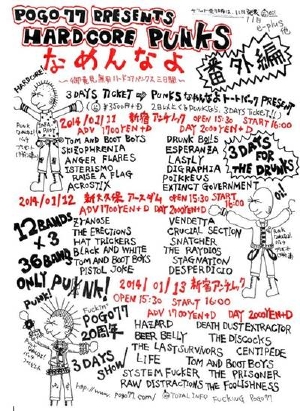 POGO'77 PRESENTS
HARDCORE PUNKS
なめんなよ
番外編
e-plus
HARDCORE
3 DAYS TICKET
PUNKSなめんなよ トートバッグ PRESENT
¥3500+D
2014/01/11 新宿アンチノック OPEN 15:30 START 16:00
ADV 1700YEN+D DAY 2000YEN+D
TOM AND BOOT BOYS
SKIZOPHRENIA
ANGER FLARES
ISTERISMO
RAISE A FLAG
ACROSTIX
DRUNK BOILS
ESPERANZA
LASTLY
DIGRAPHIA
POIKKEUS
EXTINCT GOVERNMENT
3 DAYS
FOR
THE DRUNKS!
2014/01/12 新大久保アースダム OPEN 15:30 START 16:00
ADV 1700YEN+D DAY 2000YEN+D
ZYANOSE
THE ERECTIONS
HAT TRICKERS
BLACK AND WHITE
TOM AND BOOT BOYS
PISTOL JOKE
VENDETTA
CRUCIAL SECTION
SNATCHER
THE RAYDIOS
STAGNATION
DESPERDICIO
12 BANDS
×3
36 BANDS
ONLY PUNK!
PUNK!
2014/01/13 新宿アンチノック
OPEN 15:30 START 16:00
ADV 1700YEN+D DAY 2000YEN+D
FUCKIN'
POGO77
20周年
3 DAYS
SHOW!
HAZARD
BEER BELLY
THE LAST SURVIVORS
LIFE
SYSTEM FUCKER
RAW DISTRACTIONS
DEATH DUST EXTRACTOR
THE DISCOCKS
CENTIPEDE
TOM AND BOOT BOYS
THE PRISONER
THE FOOLISHNESS
TOTAL INFO FUCKING POGO77